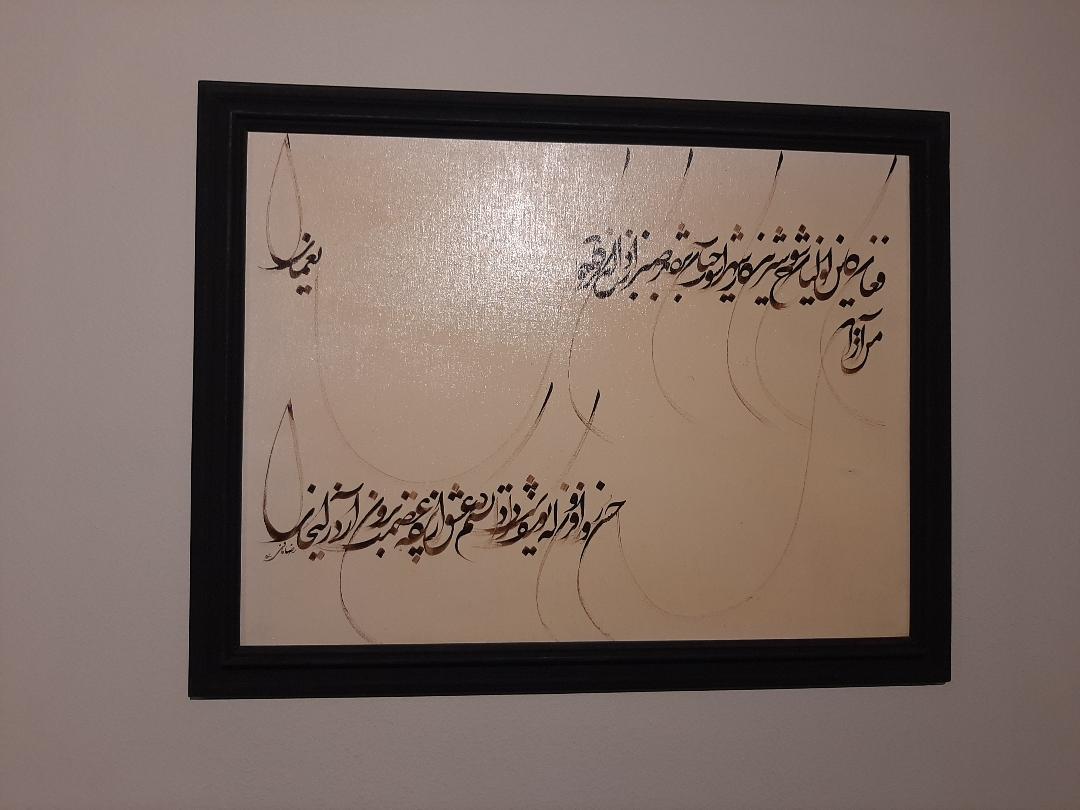 فغان کاین لولیان شوخ شیرین کار شهر آشوب چنان بردند صبر از دل که ترکان خوان یغما را
من از آن
حسن روز افزون که یوسف داشت دانستم که عشق از پرده عصمت برون آرد زلیخا را